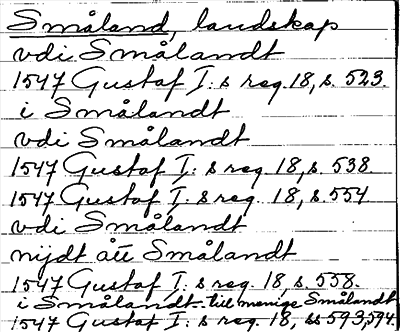 Småland, landskap
vdi Smålandt
1547 Gustaf I:s reg. 18, s. 523.
i Smålandt
vdi Smålandt
1547 Gustaf I:s reg. 18, s. 538.
1547 Gustaf I:s reg. 18, s. 554
vdi Smålandt
nijdt ått Smålandt
1547 Gustaf I:s reg. 18, s. 558.
i Smålandt - till menige Smålandt
1547 Gustaf I:s reg. 18, ss 593, 594.